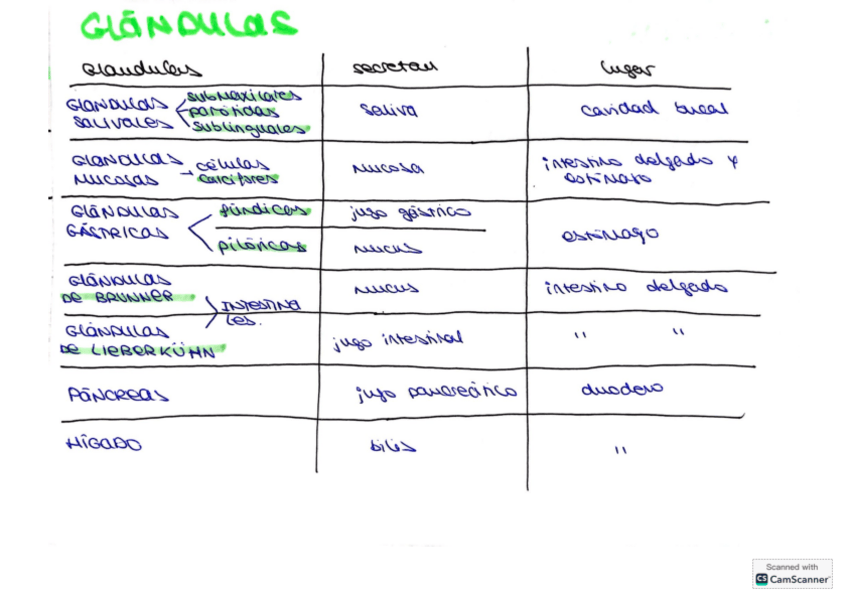 GLÁNDULAS
Glandulas secretan lugar
GLÁNDULAS SALIVALES submaxilares parótidas sublinguales saliva cavidad bucal
GLÁNDULAS MUCOSAS → células calciformes mucosa intestino delgado y estómago
GLÁNDULAS GÁSTRICAS fúndicas jugo gástrico estómago
pilóricas mucus
GLÁNDULAS DE BRUNNER INTESTINALES. mucus intestino delgado
GLÁNDULAS DE LIEBERKÜHN jugo intestinal " "
PÁNCREAS jugo pancreático duodeno
HÍGADO bilis "
Scanned with
CS CamScanner